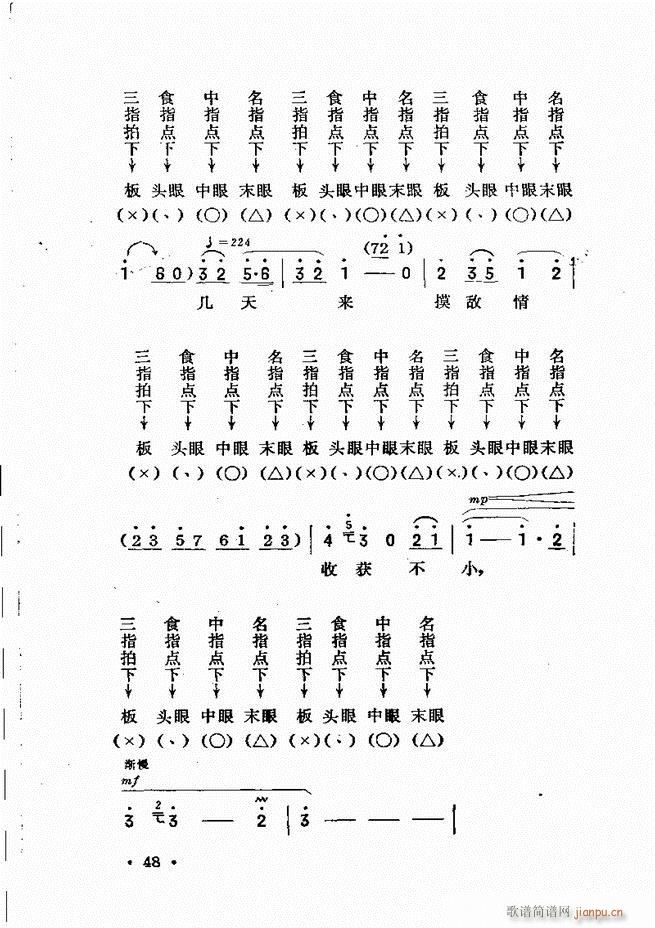 三指拍下 食指点下 中指点下 名指点下 三指拍下 食指点下 中指点下 名指点下 三指拍下 食指点下 中指点下 名指点下
板 头眼 中眼 末眼 板 头眼 中眼 末眼 板 头眼 中眼 末眼
(×) (、) (○) (△) (×) (、) (○) (△) (×) (、) (○) (△)
♩=224 (72 1)
1 60) 32 5·6 | 32 1 — 0 | 2 35 1 2
几天 来 摸敌情
三指拍下 食指点下 中指点下 名指点下 三指拍下 食指点下 中指点下 名指点下 三指拍下 食指点下 中指点下 名指点下
板 头眼 中眼 末眼 板 头眼 中眼 末眼 板 头眼 中眼 末眼
(×) (、) (○) (△) (×) (、) (○) (△) (×) (、) (○) (△)
mp
(23 57 61 23) | 4 5 3 0 21 | 1 — 1·2
收获不小,
三指拍下 食指点下 中指点下 名指点下 三指拍下 食指点下 中指点下 名指点下
板 头眼 中眼 末眼 板 头眼 中眼 末眼
(×) (、) (○) (△) (×) (、) (○) (△)
渐慢
mf
3 2 3 — 2 | 3 — — — |
· 48 ·
歌谱简谱网 jianpu.cn